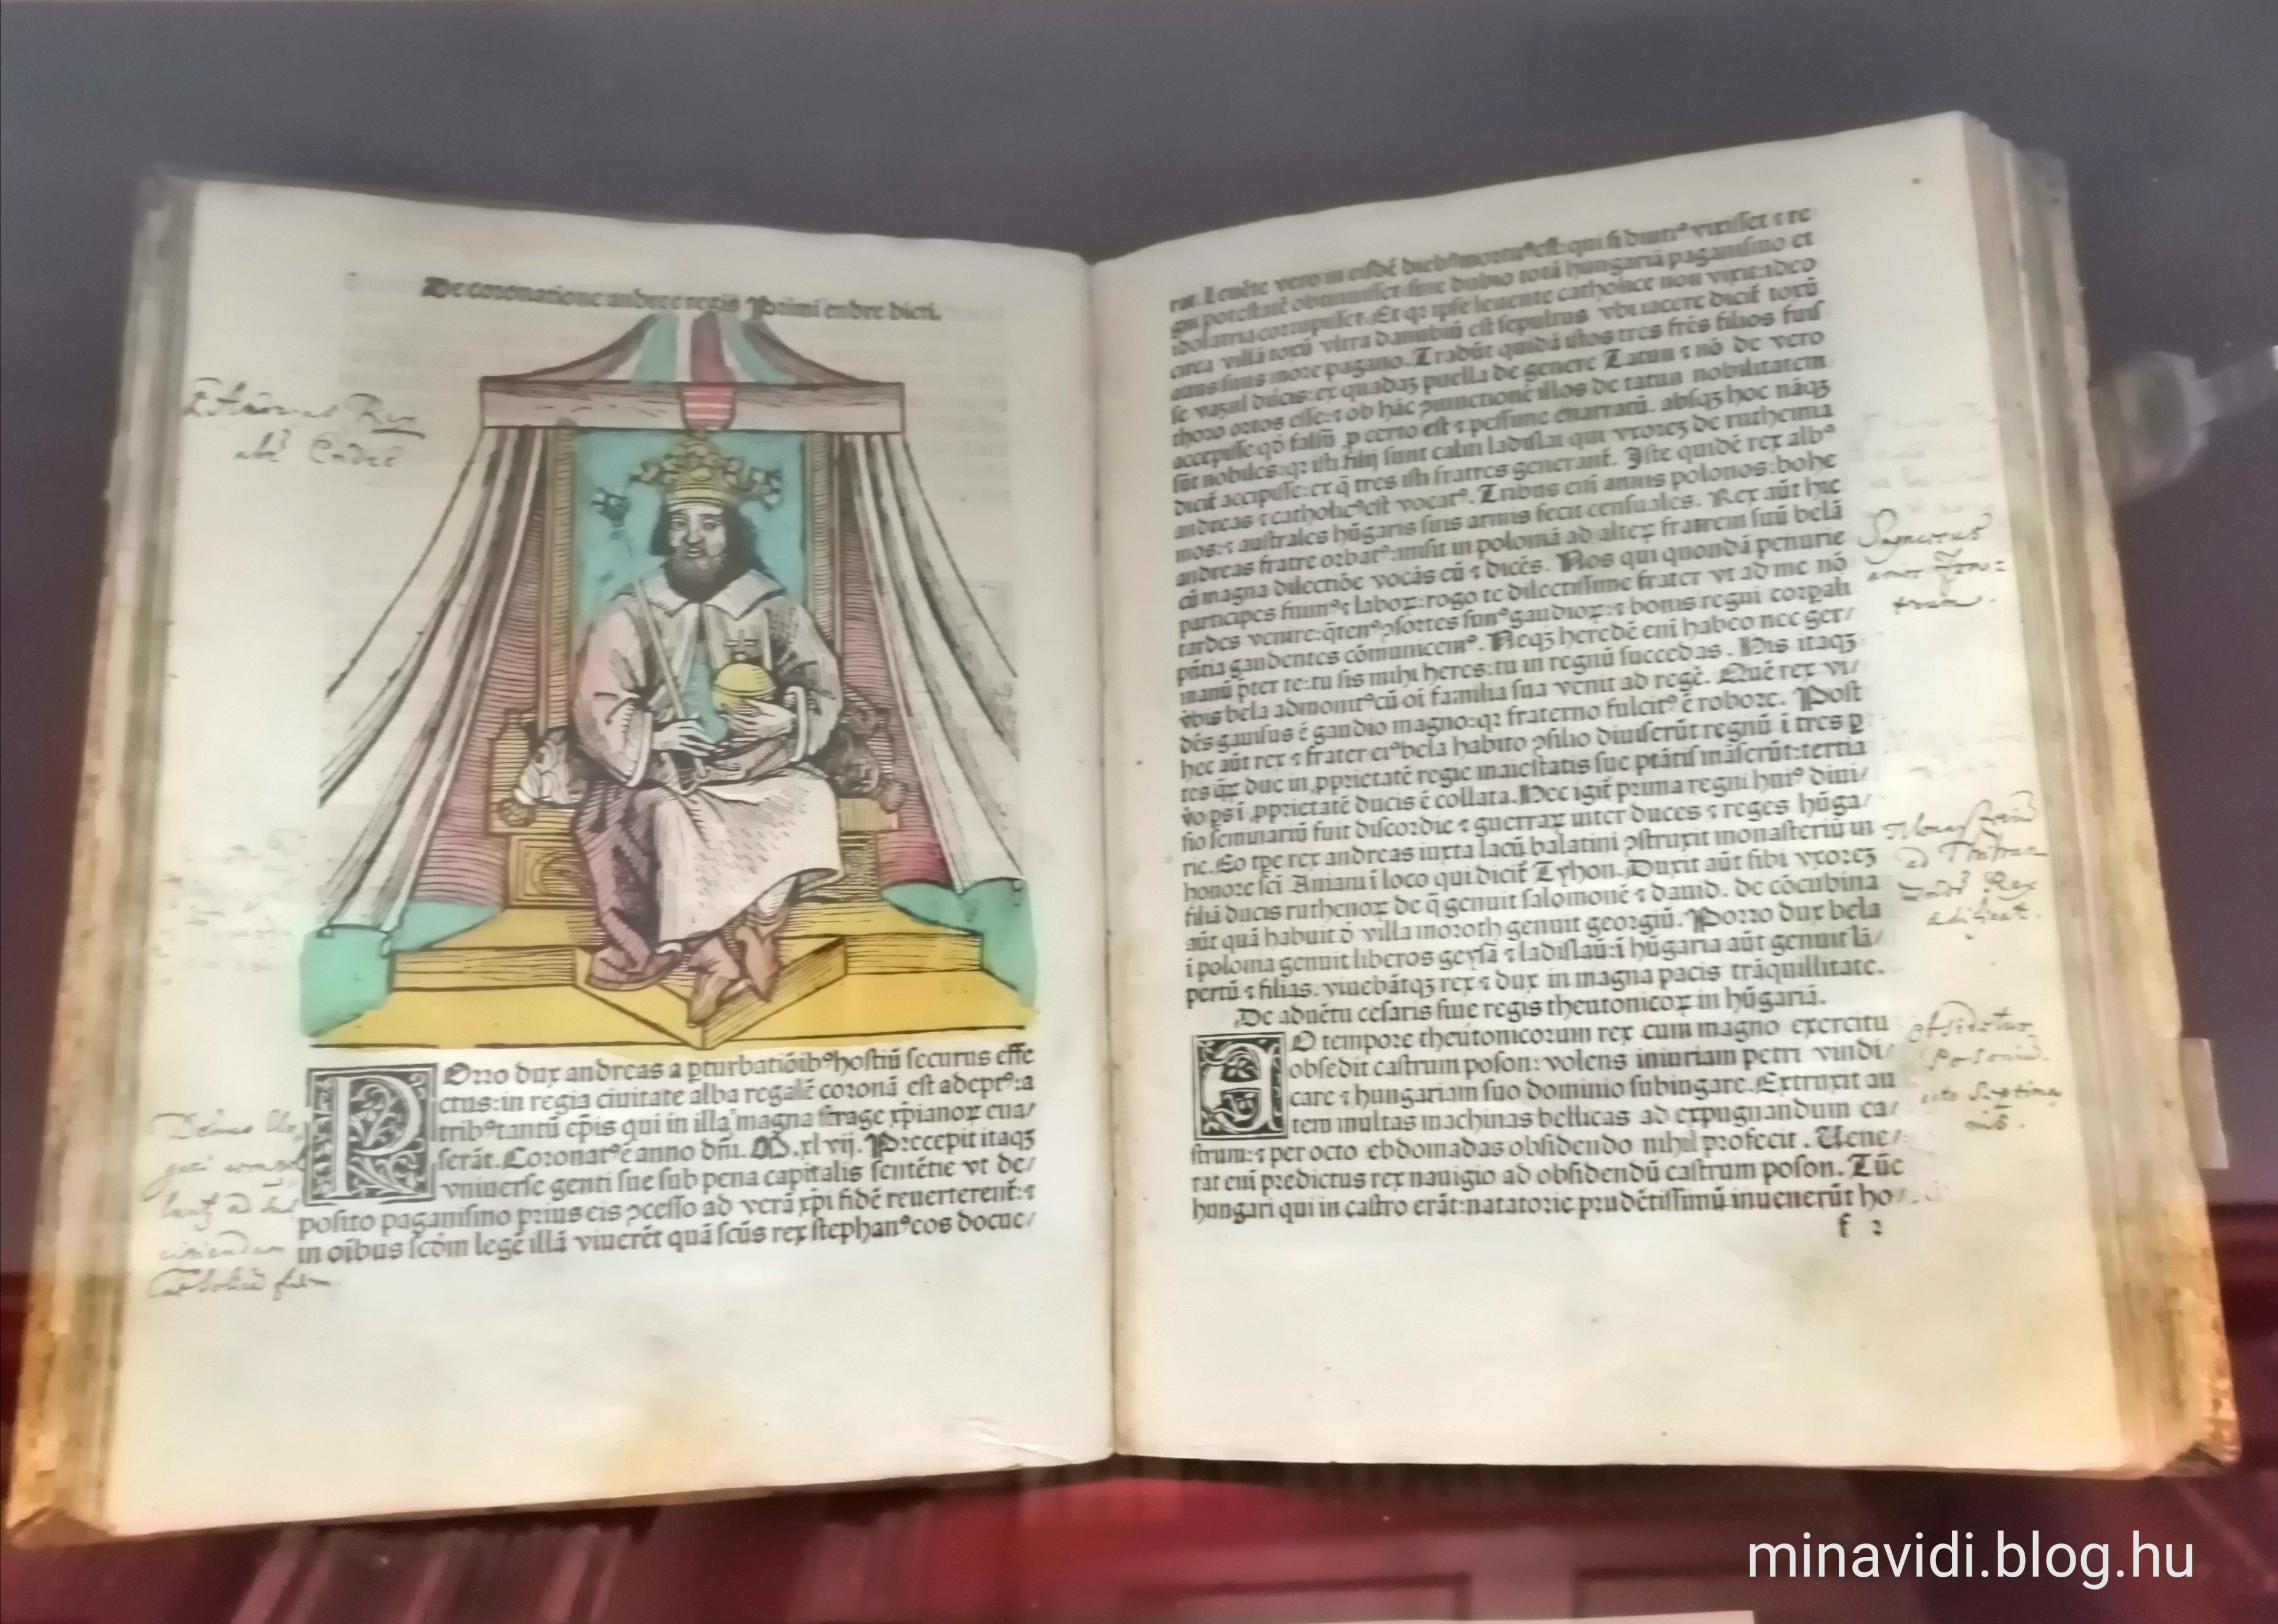 De coronatione andree regis Primi endre dicti.
Rex
Endre
POrro dux andreas a ꝑturbatiõibꝰ hostiũ securus effe
ctus: in regia ciuitate alba regalẽ coronã est adeptꝰ: a
tribꝰ tantũ ep̃is qui in illa magna strage xp̃ianoꝝ eua/
serãt. Coronatꝰ ẽ anno dñi. M. xl vij. Precepit itaqꝫ
vniuerse genti sue sub pena capitalis sentẽtie vt de/
posito paganismo prius eis ↄcesso ad verã xp̃i fidẽ reuerterent̃: ⁊
in oĩbus scðm legẽ illã viuerẽt quã scũs rex stephanꝰ eos docue/
rat. Leuẽte vero in eisdẽ diebꝰ mortuꝰ est: qui si diutiꝰ vixisset ⁊ re
gni potestatẽ obtinuisset: sine dubio totã hungariã paganismo et
idolatria corrupisset. Et qꝛ ipse leuente catholice non vixit: adeo
circa villã toxũ vltra danubiũ est sepultus vbi iacere dicit̃ toxũ
auus suus more pagano. Tradũt quidã istos tres fr̃es filios fuis
se vazul ducis: ex quadaꝫ puella de genere Tatun ⁊ nõ de vero
thoro ortos esse: ⁊ ob hãc ↄiunctionẽ illos de tatun nobilitatem
accepisse qð falsũ ꝓ certo est ⁊ pessime enarratũ. absqꝫ hoc nãqꝫ
sũt nobiles: qꝛ isti filij sunt calui ladislai qui vxoreꝫ de ruthenia
dicit̃ accepisse: ex q̃ tres isti fratres generant̃. Iste quidẽ rex albꝰ
andreas ⁊ catholicꝰ est vocatꝰ. Tribus eni annis polonos: bohe
mos: ⁊ australes hũgaris suis armis fecit censuales. Rex aũt hic
andreas fratre orbatꝰ: misit in polomã ad alteꝝ fratrem suũ belã
cũ magna dilectiõe vocãs eũ ⁊ dicẽs. Nos qui quondã penurie
participes fuimꝰ ⁊ laboꝝ: rogo te dilectissime frater vt ad me nõ
tardes venire: q̃tenꝰ ↄsortes simꝰ gaudioꝝ: ⁊ bonis regni corpali
pñtia gaudentes cõmunicemꝰ. Neqꝫ heredẽ eni habeo nec ger/
manũ p̃ter te: tu sis mihi heres: tu in regnũ succedas. His itaqꝫ
v̾bis bela admonitꝰ cũ oĩ familia sua venit ad regẽ. Quẽ rex vi/
dẽs gauisus ẽ gaudio magno: qꝛ fraterno fulcitꝰ ẽ robore. Post
hec aũt rex ⁊ frater eiꝰ bela habito ↄsilio diuiserũt regnũ ĩ tres ꝑ
tes q̃ꝝ due in ꝓprietatẽ regie maiestatis seu ptãtis mãserũt: tertia
v̾o ps ĩ ꝓprietatẽ ducis ẽ collata. Hec igit̃ prima regni hniꝰ diui/
sio seminariũ fuit discordie ⁊ guerraꝝ inter duces ⁊ reges hũga/
rie. Eo tꝑe rex andreas iuxta lacũ balatini ↄstruxit monasteriũ in
honore sc̃i Aniani ĩ loco qui dicit̃ Tyhon. Duxit aũt sibi vxoreꝫ
filiã ducis ruthenoꝝ de q̃ genuit salomonẽ ⁊ dauid. de cõcubina
aũt quã habuit ð villa moroth genuit georgiũ. Porro dux bela
ĩ polonia genuit liberos geysã ⁊ ladislaũ: ĩ hũgaria aũt genuit lã/
pertũ ⁊ filias. viuebãtqꝫ rex ⁊ dux in magna pacis trãquillitate.
De aduẽtu cesaris siue regis theutonicoꝝ in hũgariã.
EO tempore theutonicorum rex cum magno exercitu
obsedit castrum poson: volens iniuriam petri vindi/
care ⁊ hungariam suo dominio subiugare. Extruxit au
tem multas machinas bellicas ad expugnandum ca/
strum: ⁊ per octo ebdomadas obsidendo nihil profecit. Uene/
rat eni predictus rex nauigio ad obsidendũ castrum poson. Tũc
hungari qui in castro erãt: natatorie prudẽtissimũ inuenerũt ho/
f 2
minavidi.blog.hu